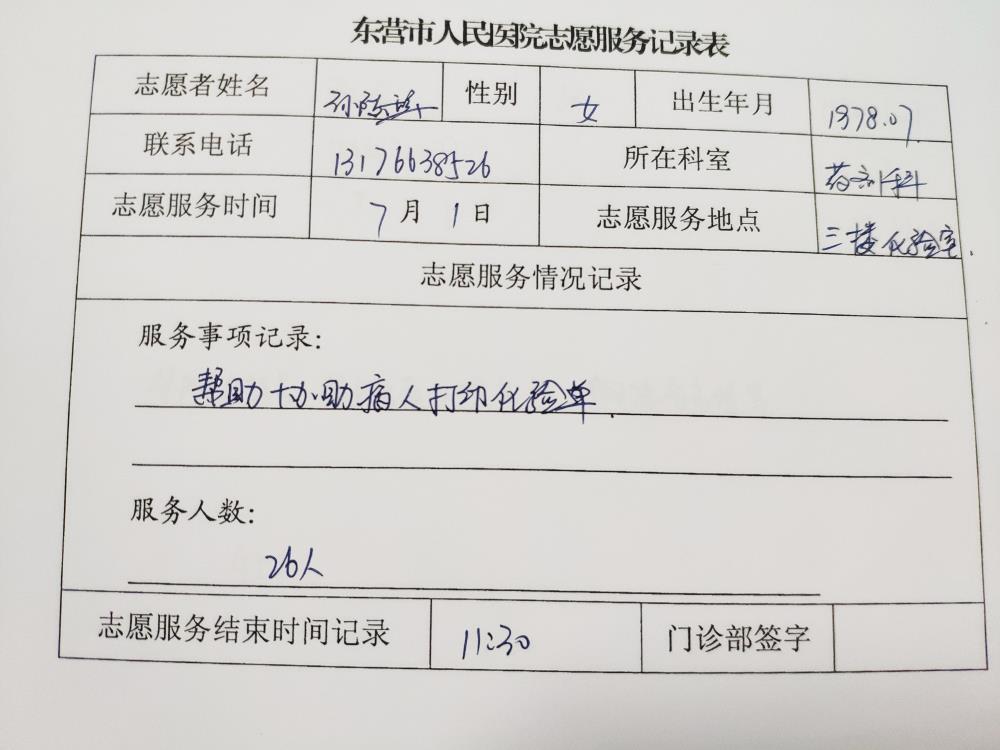 东营市人民医院志愿服务记录表
志愿者姓名 孙 性别 女 出生年月 1978.07.
联系电话 13176638526 所在科室 药剂科
志愿服务时间 7月1日 志愿服务地点 三楼化验室.
志愿服务情况记录
服务事项记录:
帮助协助病人打印化验单.
服务人数:
26人
志愿服务结束时间记录 11:30 门诊部签字